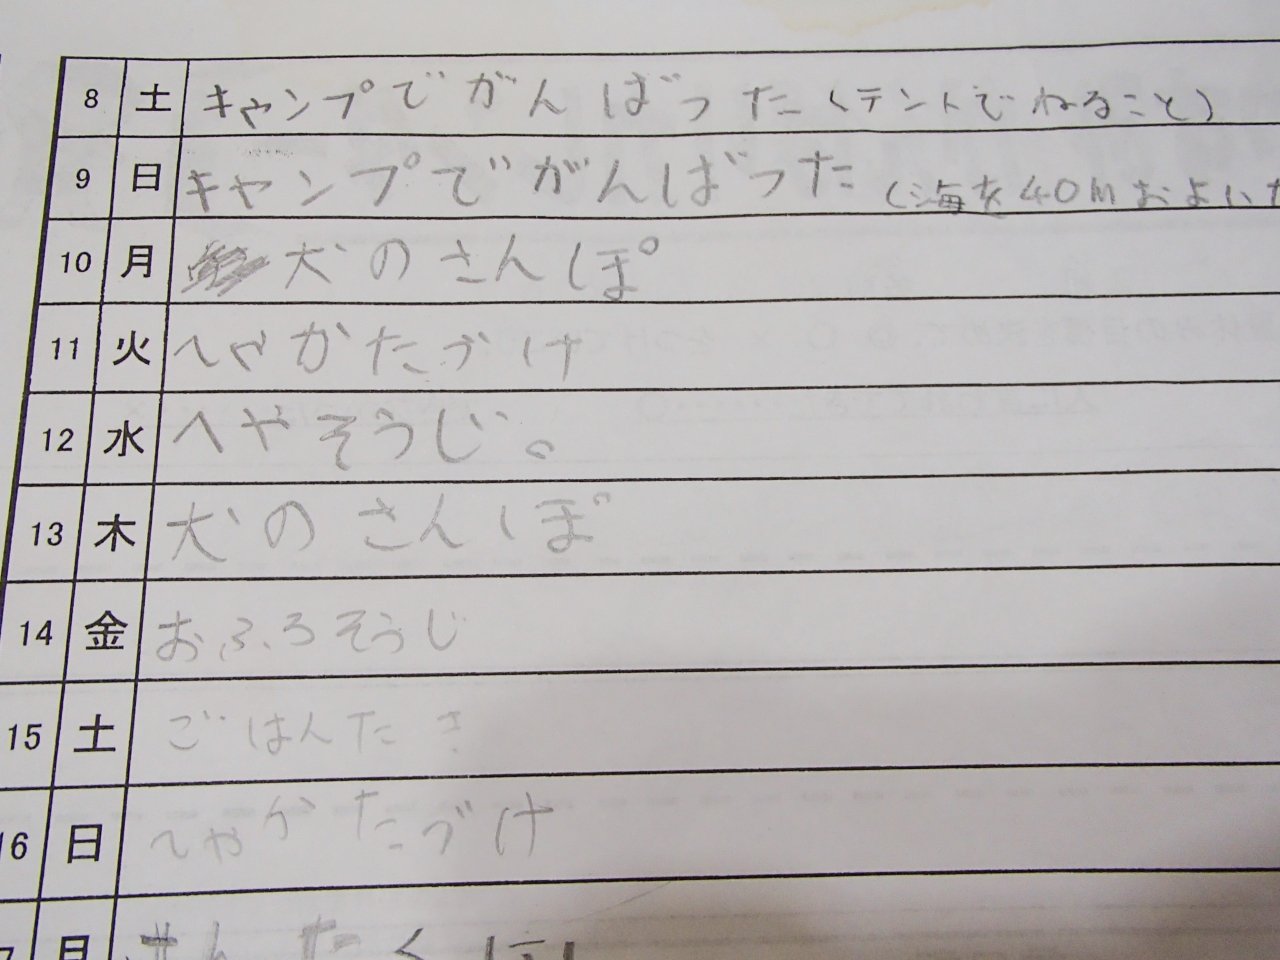 8 土 キャンプでがんばった(テントでねること)
9 日 キャンプでがんばった(海を40mおよいた
10 月 犬のさんぽ
11 火 へやかたづけ
12 水 へやそうじ。
13 木 犬のさんぽ
14 金 おふろそうじ
15 土 ごはんたき
16 日 へやかたづけ
7 月